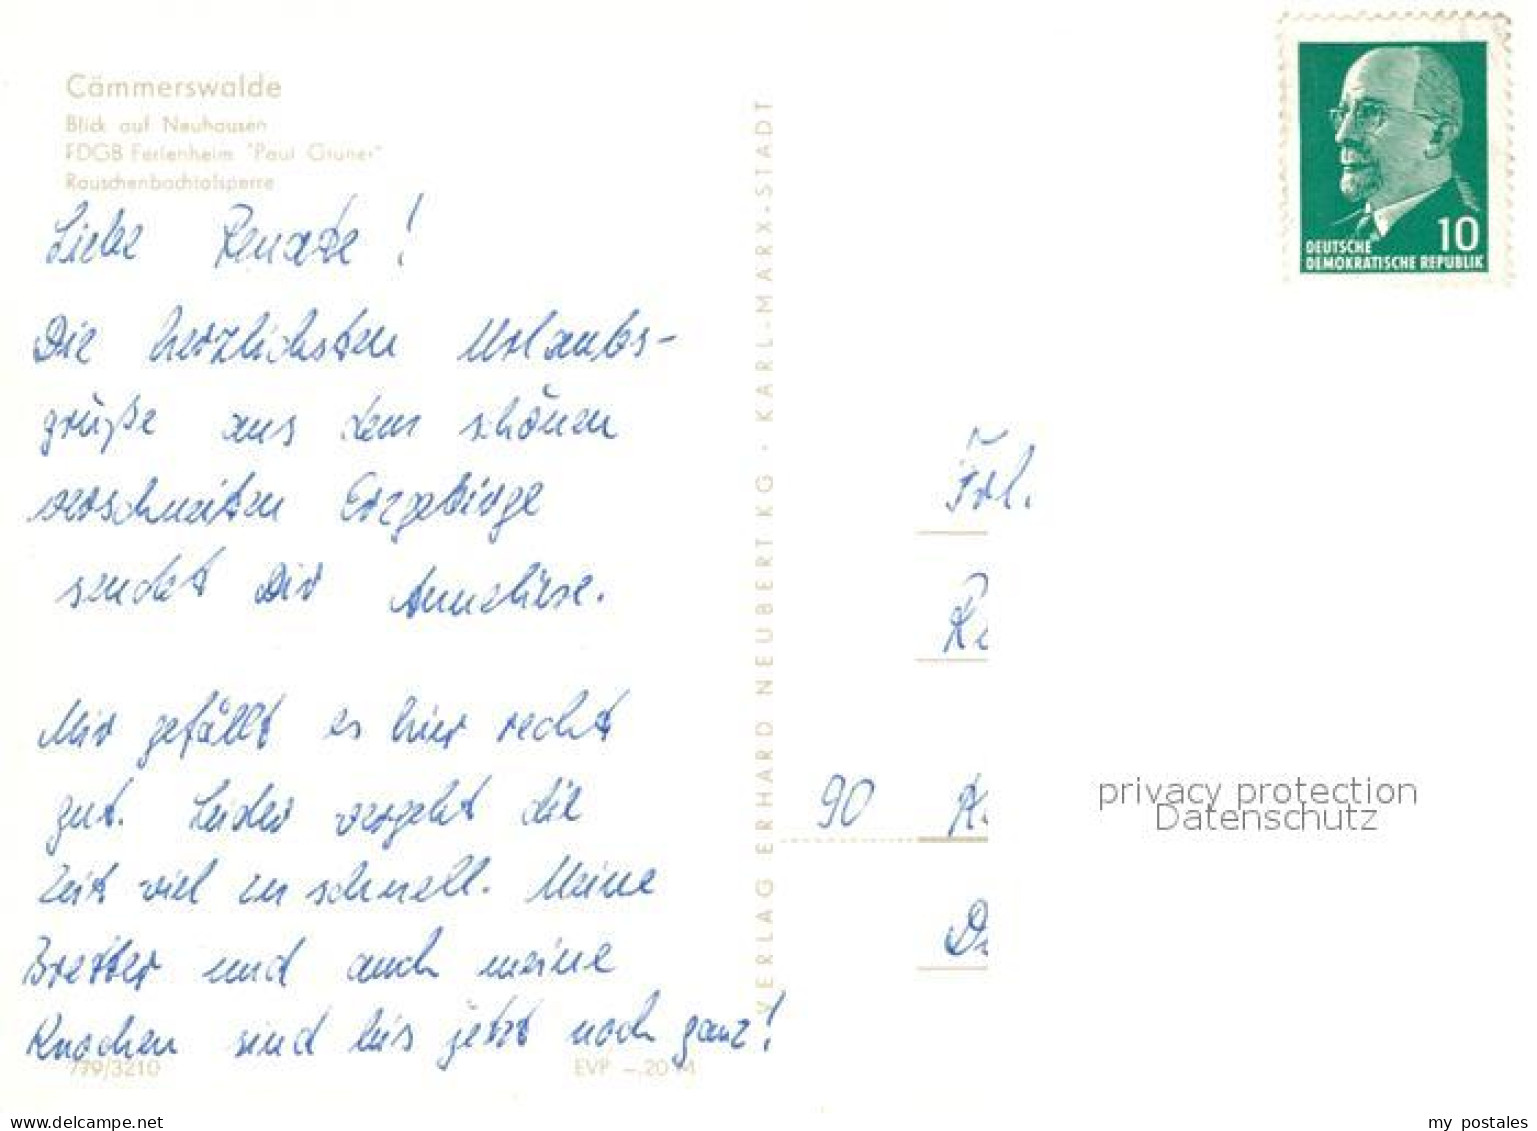 Cämmerswalde
Blick auf Neuhausen
FDGB Ferienheim "Paul Gruner"
Rauschenbachtalsperre
Liebe Renate!
Die herzlichsten Urlaubs-
grüße aus dem schönen
verschneiten Erzgebirge
sendet Dir Anneliese.
Mir gefällt es hier recht
gut. Leider vergeht die
Zeit viel zu schnell. Meine
Bretter und auch meine
Knochen sind bis jetzt noch ganz!
779/3210
EVP -.20 M
VERLAG ERHARD NEUBERT KG · KARL-MARX-STADT
10
DEUTSCHE
DEMOKRATISCHE REPUBLIK
Frl.
Re
90
privacy protection
Datenschutz
my postales